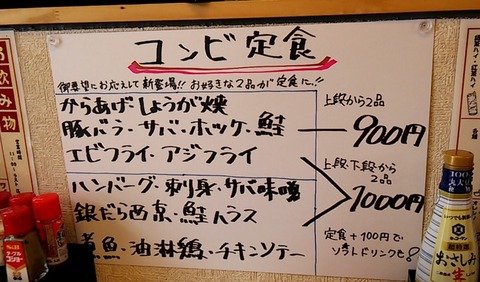 コンビ定食
御要望にお応えして新登場!! お好きな2品が定食に!!
からあげ しょうが焼
豚バラ・サバ・ホッケ・鮭
エビフライ・アジフライ
上段から2品
900円
ハンバーグ・刺身・サバ味噌
銀だら西京・鮭ハラス
煮魚・油淋鶏・チキンソテー
上段・下段から
2品
1000円
定食+100円で
ソフトドリンクも!
お飲み物
いつでも新鮮
超特選
おさしみ
生しょうゆ